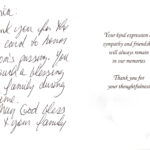 thank you for the
card to honor
passing. You
a blessing
family during
time.
God bless
& your family
Your kind expression of
sympathy and friendship
will always remain
in our memories
Thank you for
your thoughtfulness